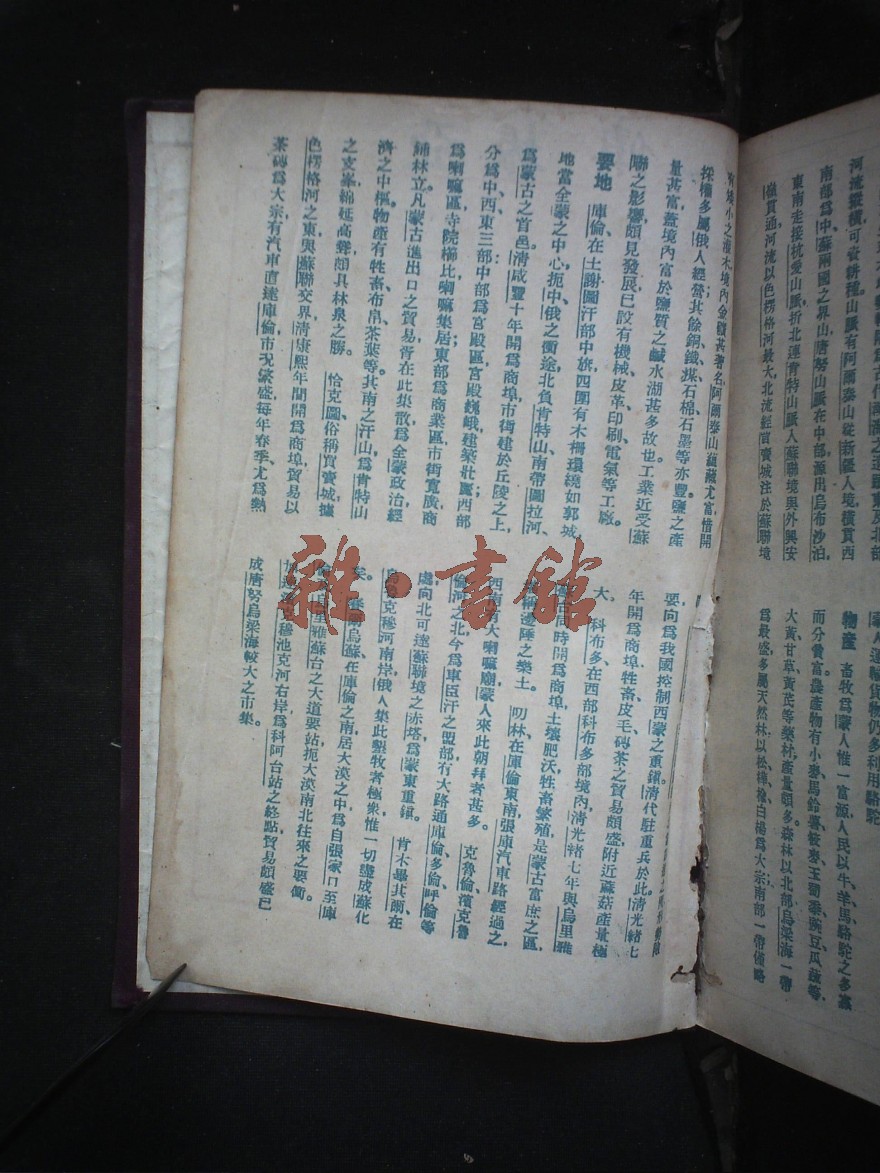 河流縱橫,可資耕種。山脈有阿爾泰山從新疆入境,橫貫西
南部,爲中蘇兩國之界山。唐努山脈在中部,源出烏布沙泊,
東南走接杭愛山脈,折北運肯特山脈,入蘇聯境,與外興安
嶺貫通。河流以色楞格河最大,北流經買賣城注於蘇聯境
物產 畜牧爲蒙人惟一富源,人民以牛、羊、馬、駱駝之多寡
而分貴富。農產物有小麥、馬鈴薯、筱麥、玉蜀黍、豌豆、瓜蔬等,
大黃、甘草、黃芪等藥材,產量頗多。森林以北部烏梁海一帶
爲最盛,多屬天然林,以松、樺、檜、白楊爲大宗;南部一帶僅略
境內金礦甚著名,阿爾泰山蘊藏尤富,惜開
採權多屬俄人經營;其餘銅、鐵、煤、石棉、石墨等亦豐。鹽之產
量甚富,蓋境內富於鹽質之鹹水湖甚多故也。工業近受蘇
聯之影響,頗見發展,已設有機械、皮革、印刷、電氣等工廠。
要地 庫倫在土謝圖汗部中旗,四圍有木柵環繞如郭城,
地當全蒙之中心,扼中俄之衝途,北負肯特山,南帶圖拉河,
爲蒙古之首邑。清咸豐十年開爲商埠,市街建於丘陵之上,
分爲中、西、東三部:中部爲宮殿區,宮殿巍峨,建築壯麗;西部
爲喇嘛區,寺院櫛比,喇嘛集居;東部爲商業區,市街寬廣,商
舖林立。凡蒙古進出口之貿易,胥在此集散,爲全蒙政治經
濟之中樞。物產有牲畜、布帛、茶葉等。其南之汗山爲肯特山
之支峯,綿延高聳,頗具林泉之勝。 恰克圖俗稱買賣城,據
色楞格河之東,與蘇聯交界,清康熙年間開爲商埠,貿易以
茶磚爲大宗,有汽車直達庫倫,市況繁盛,每年春季,尤爲熱
要,向爲我國控制西蒙之重鎮,清代駐重兵於此。清光緒七
年開爲商埠,牲畜、皮毛、磚茶之貿易頗盛,附近蘇菇產量極
大。 科布多在西部科布多部境內,清光緒七年與烏里雅
同時開爲商埠,土壤肥沃,牲畜繁殖,是蒙古富庶之區,
邊陲之樂土。 叨林在庫倫東南,張庫汽車路經過之,
西南有大喇嘛廟,蒙人來此朝拜者甚多。 克魯倫濱克魯
倫河之北,今爲車臣汗之盟部,有大路通庫倫、多倫、呼倫等
處,向北可達蘇聯境之赤塔,爲蒙東重鎮。 肯木畢其爾在
克穆河南岸,俄人集此墾牧者極衆,惟一切盡成蘇化
爾烏蘇在庫倫之南,居大漠之中,爲自張家口至庫
里雅蘇台之大道要站,扼大漠南北往來之要衝。
穆池克河右岸,爲科阿台站之終點,貿易頗盛,已
成唐努烏梁海較大之市集。
雜·書館